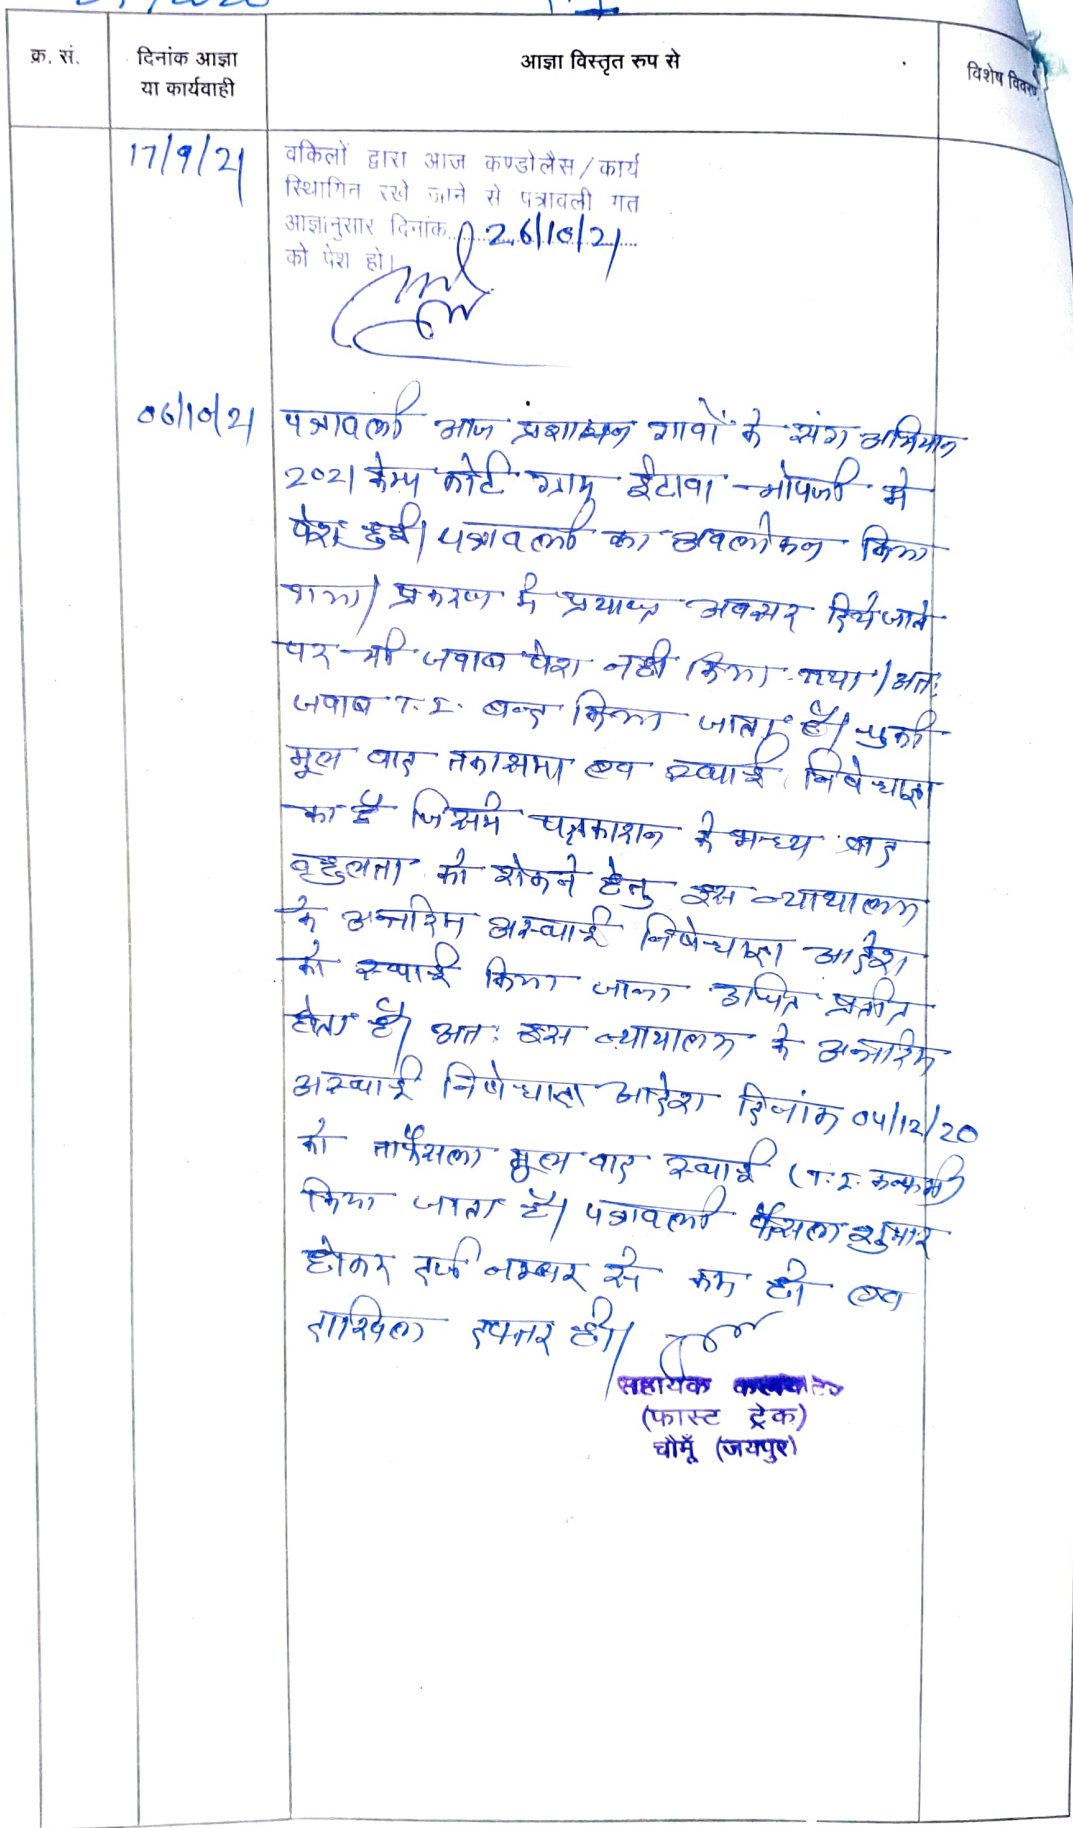 क्र. सं.
दिनांक आज्ञा
या कार्यवाही
आज्ञा विस्तृत रुप से
विशेष विवरण
17/9/21
वकिलों द्वारा आज कण्डोलैस/कार्य
स्थिागित रखे जाने से पत्रावली गत
आज्ञानुसार दिनांक 26/10/21
को पेश हो।
06/10/21
पत्रावली आज प्रशासन गावों के संग अभियान
2021 केम्प कोर्ट ग्राम ईटावा भोपजी मे
पेश हुई। पत्रावली का अवलोकन किया
गया। प्रकरण में प्रयाप्त अवसर दिये जाने
पर भी जवाब पेश नही किया गया। अतः
जवाब T.I. बन्द किया जाता है। चुकी
मूल वाद तकासमा एव स्थाई निषेधाज्ञा
का है जिसमे पक्षकारान के मध्य वाद
बहुलता को रोकने हेतु इस न्यायालय
के अन्तरिम अस्थाई निषेधाज्ञा आदेश
को स्थाई किया जाना उचित प्रतीत
होता है। अतः इस न्यायालय के अन्तरिम
अस्थाई निषेधाज्ञा आदेश दिनांक 04/12/20
को ताफैसला मूल वाद स्थाई (T.I. कन्फर्म)
किया जाता है। पत्रावली फैसला शुमार
होकर दर्ज नम्बर से कम हो एव
दाखिल दफ्तर हो।
सहायक कलक्टर
(फास्ट ट्रेक)
चौमूँ (जयपुर)